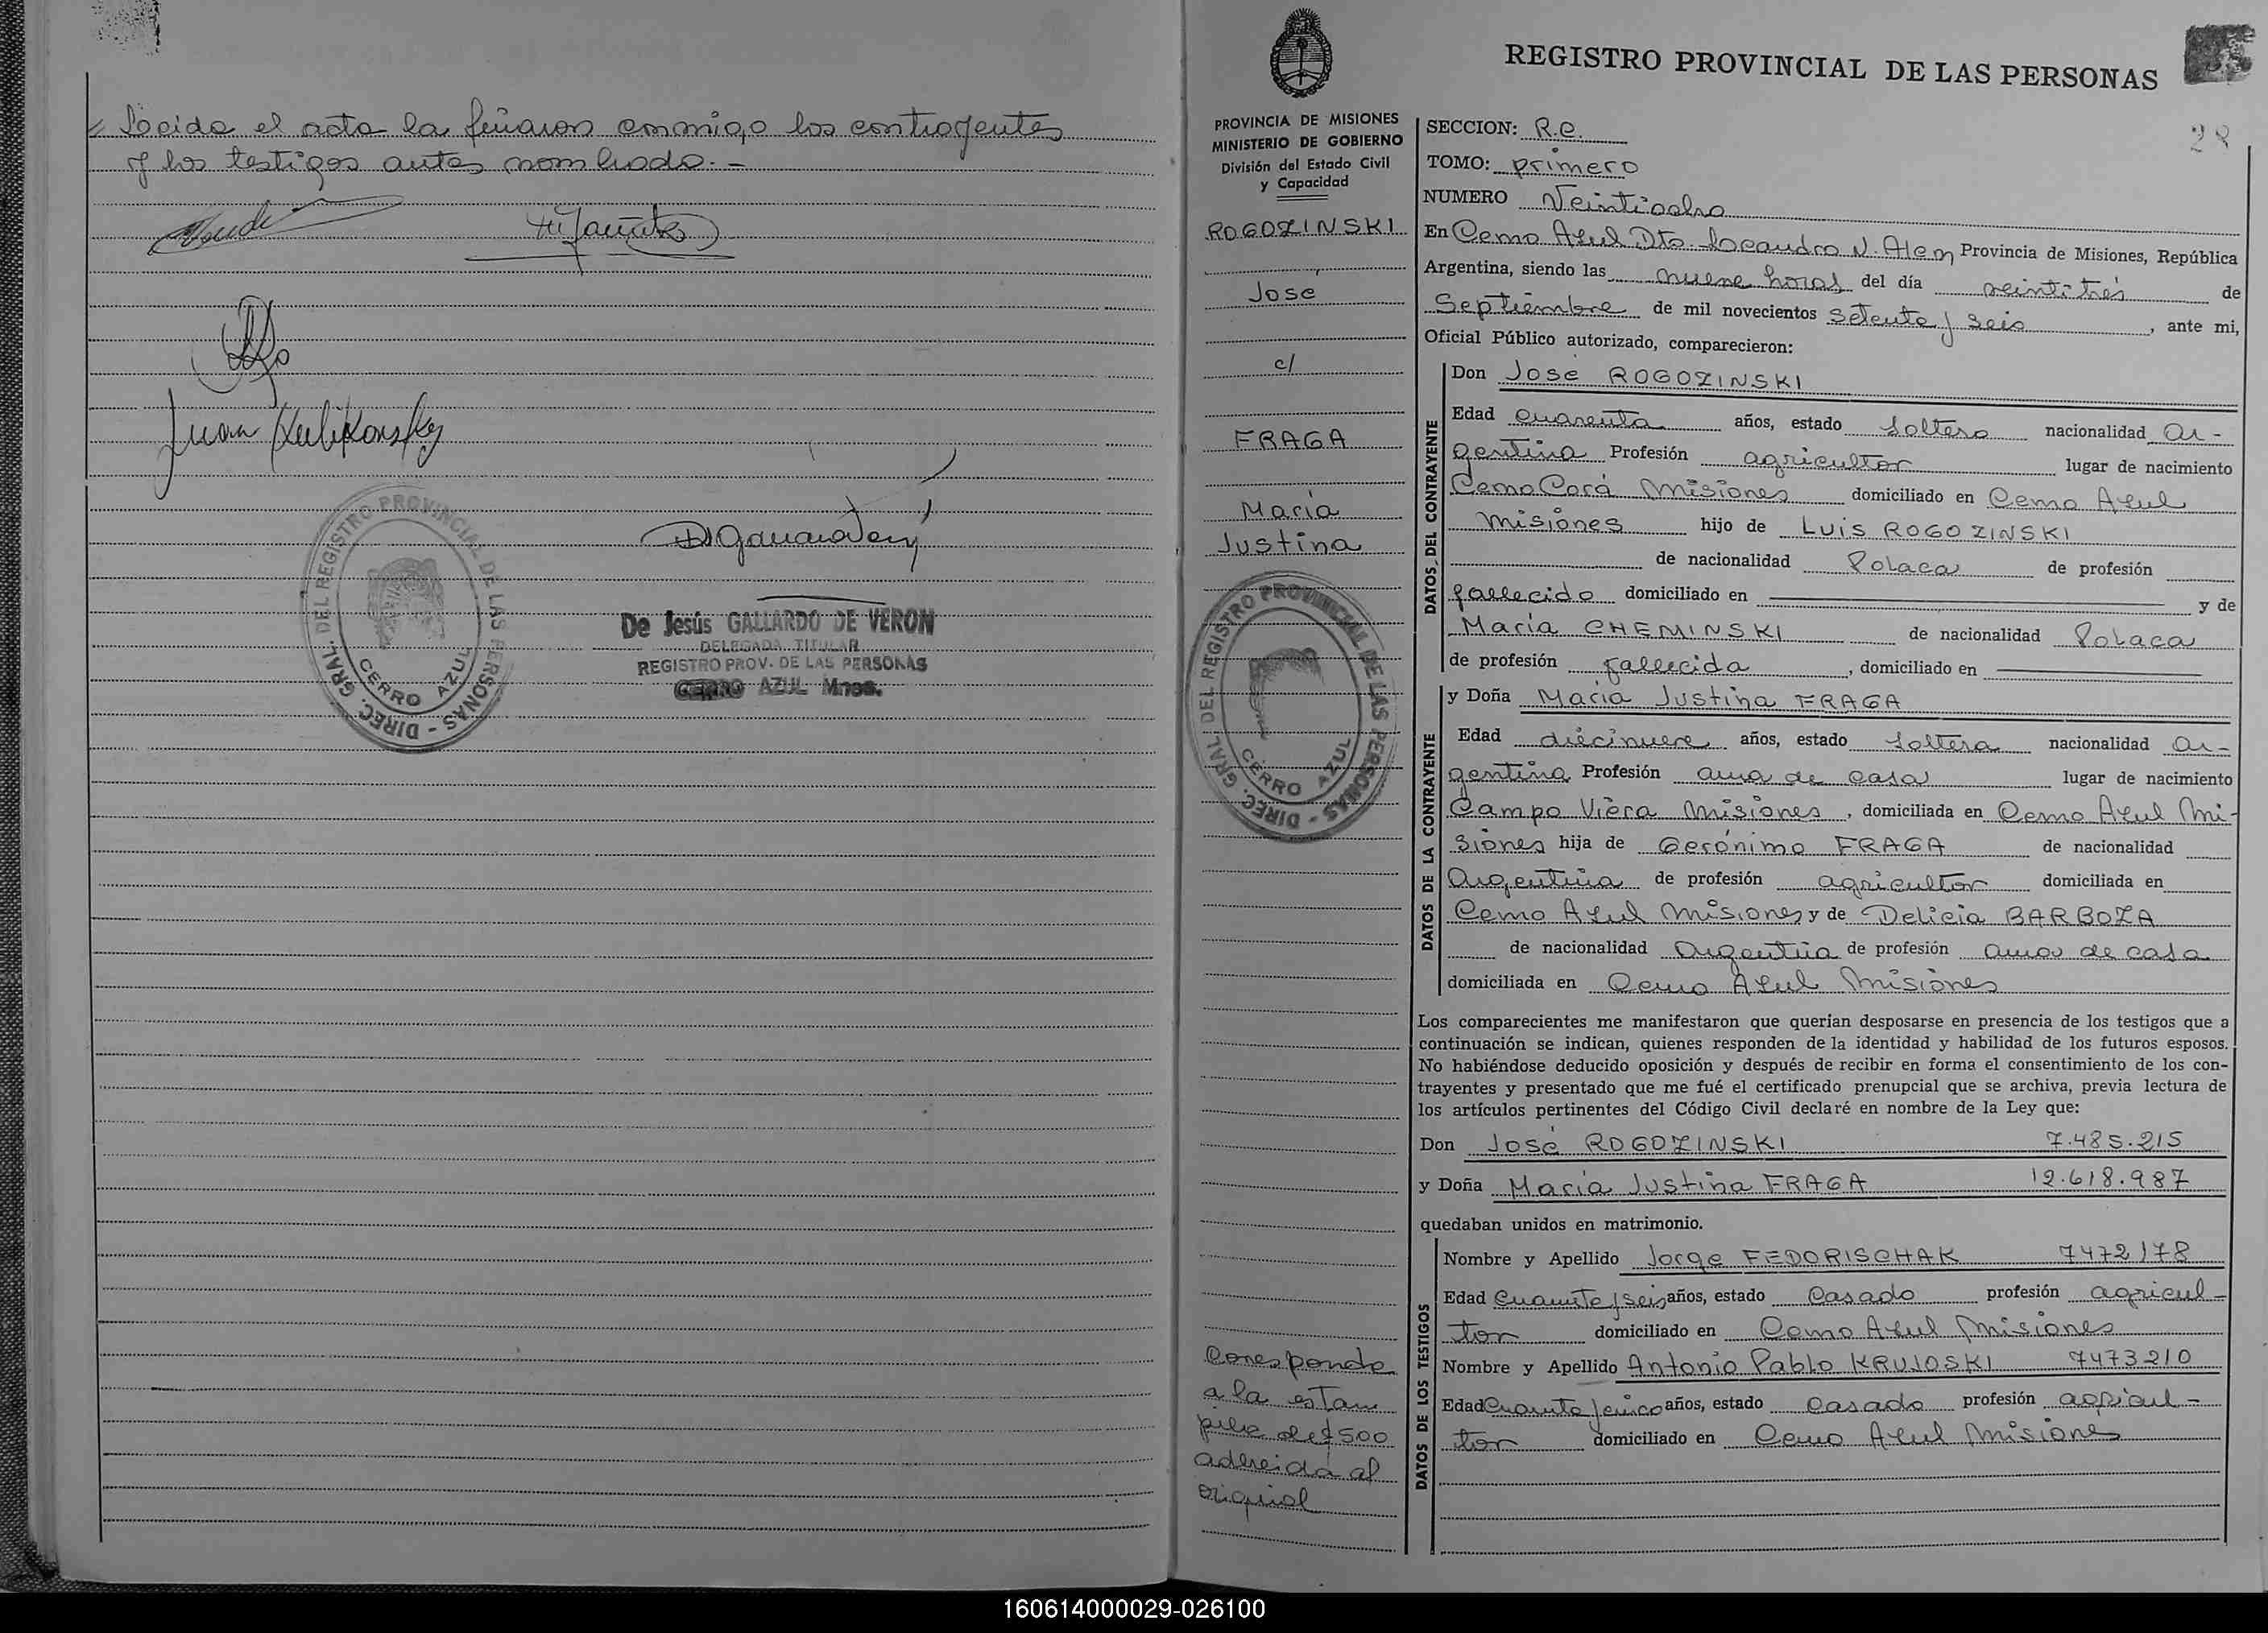 Leida el acta la firmaron conmigo los contrayentes
y los testigos antes nombrado. -
Juan Kulikonsky
DIREC. GRAL. DEL REGISTRO PROVINCIAL DE LAS PERSONAS -
CERRO AZUL
De Jesús GALLARDO DE VERON
DELEGADA TITULAR
REGISTRO PROV. DE LAS PERSONAS
CERRO AZUL Mnes.
REGISTRO PROVINCIAL DE LAS PERSONAS
28
PROVINCIA DE MISIONES
MINISTERIO DE GOBIERNO
División del Estado Civil
y Capacidad
ROGOZINSKI
José
c/
FRAGA
María
Justina
DIREC. GRAL. DEL REGISTRO PROVINCIAL DE LAS PERSONAS -
CERRO AZUL
Corresponde
a la estam
pilla de $500
adherida al
original
SECCION: R.C.
TOMO: primero
NUMERO Veintiocho
En Cerro Azul Dto. Leandro N. Alem Provincia de Misiones, República
Argentina, siendo las nueve horas del día veintitrés de
Septiembre de mil novecientos setenta y seis, ante mi,
Oficial Público autorizado, comparecieron:
DATOS DEL CONTRAYENTE
Don José ROGOZINSKI
Edad cuarenta años, estado soltero nacionalidad ar-
gentina Profesión agricultor lugar de nacimiento
Cerro Corá Misiones domiciliado en Cerro Azul
Misiones hijo de Luis ROGOZINSKI
de nacionalidad Polaca de profesión
fallecido domiciliado en y de
María CHEMINSKI de nacionalidad Polaca
de profesión fallecida, domiciliado en
DATOS DE LA CONTRAYENTE
y Doña María Justina FRAGA
Edad diecinueve años, estado soltera nacionalidad ar-
gentina Profesión ama de casa lugar de nacimiento
Campo Viera Misiones, domiciliada en Cerro Azul Mi-
siones hija de Gerónimo FRAGA de nacionalidad
Argentina de profesión agricultor domiciliada en
Cerro Azul Misiones y de Delicia BARBOZA
de nacionalidad Argentina de profesión ama de casa
domiciliada en Cerro Azul Misiones
Los comparecientes me manifestaron que querían desposarse en presencia de los testigos que a
continuación se indican, quienes responden de la identidad y habilidad de los futuros esposos.
No habiéndose deducido oposición y después de recibir en forma el consentimiento de los con-
trayentes y presentado que me fué el certificado prenupcial que se archiva, previa lectura de
los artículos pertinentes del Código Civil declaré en nombre de la Ley que:
Don José ROGOZINSKI 7.485.215
y Doña María Justina FRAGA 12.618.987
quedaban unidos en matrimonio.
DATOS DE LOS TESTIGOS
Nombre y Apellido Jorge FEDORISCHAK 7472178
Edad cuarenta y seis años, estado casado profesión agricul-
tor domiciliado en Cerro Azul Misiones
Nombre y Apellido Antonio Pablo KRUJOSKI 7473210
Edad cuarenta y cinco años, estado casado profesión agricul-
tor domiciliado en Cerro Azul Misiones
160614000029-026100